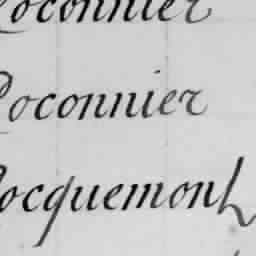 Coconnier
Coconnier
Cocquemont